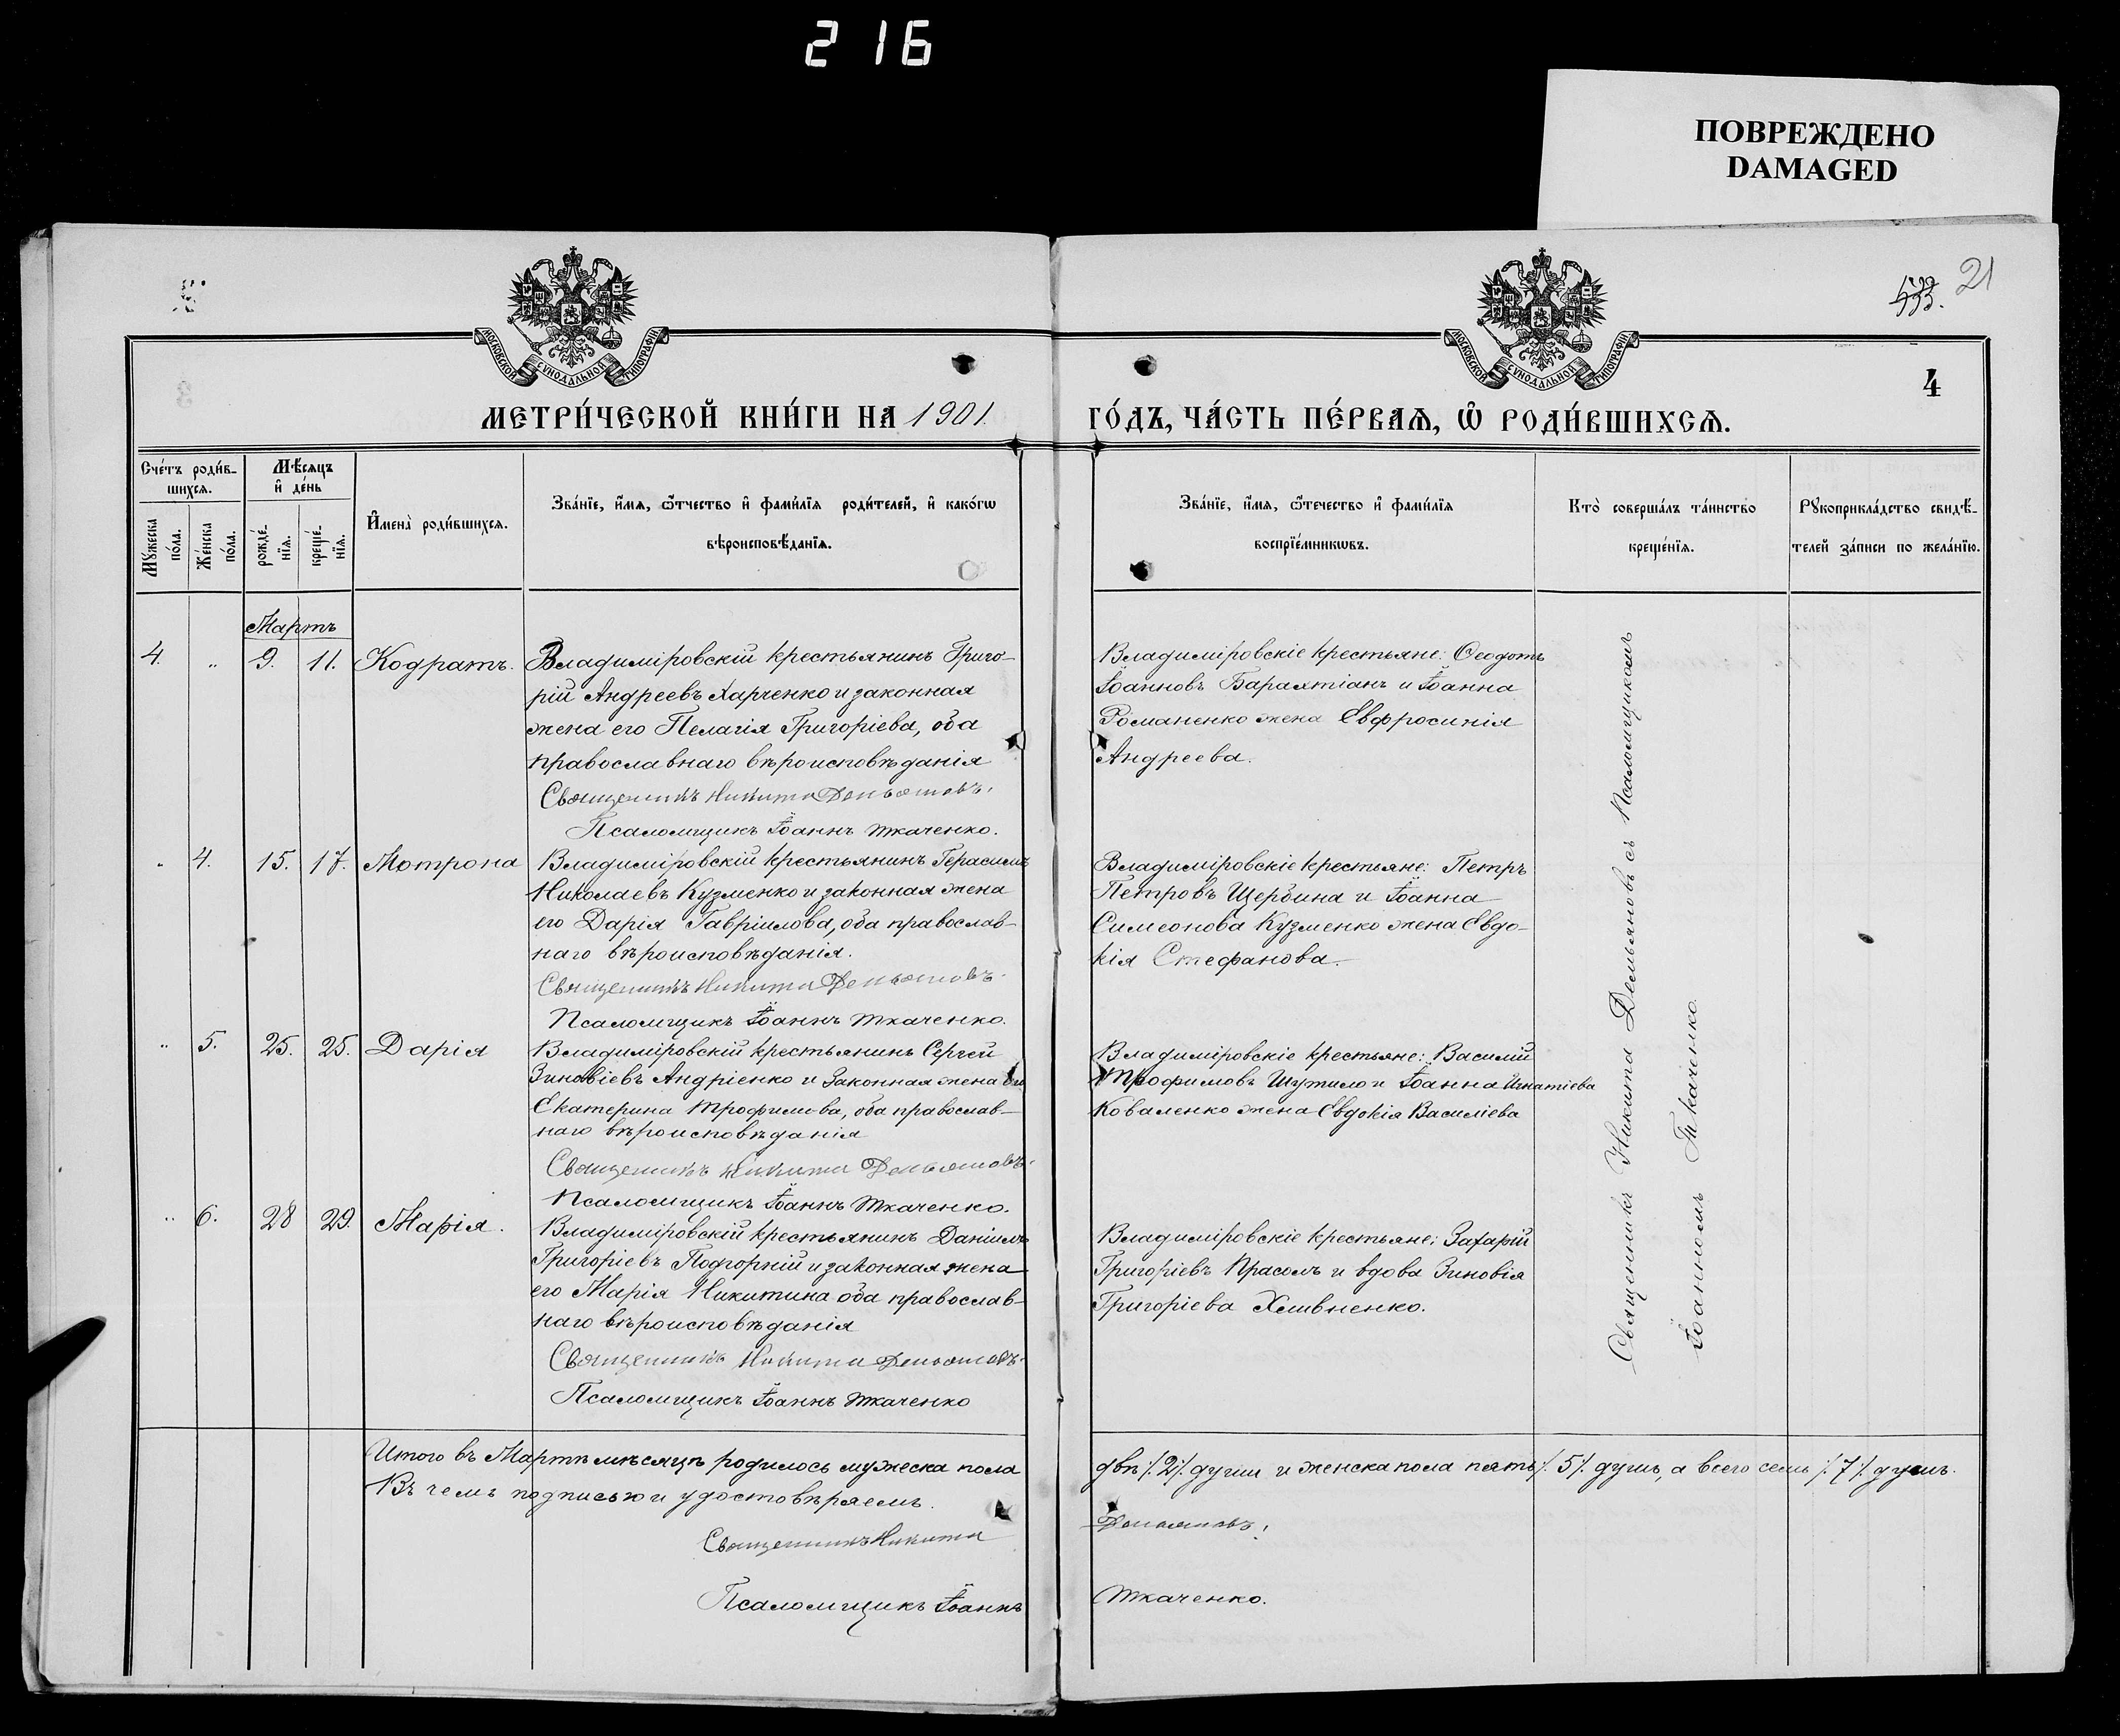 2 16
ПОВРЕЖДЕНО
DAMAGED
21
МОСКОВСКОЙ СѴНОДАЛЬНОЙ ТИПОГРАФІИ
МОСКОВСКОЙ СѴНОДАЛЬНОЙ ТИПОГРАФІИ
4
МЕТРИ́ЧЕСКОЙ КНИ́ГИ НА 1901.
ГО́ДЪ, ЧА́СТЬ ПЕ́РВАѦ, Ѡ҆ РОДИ́ВШИХСѦ.
Сче́тъ роди́в-
шихсѧ.
Мѣ́сяцъ
и҆ де́нь
Му́жеска
по́ла.
Же́нска
по́ла.
рожде́-
нїѧ.
креще́-
нїѧ.
И҆мена̀ роди́вшихсѧ.
Зва́нїе, и҆́мѧ, ѻ҆́тчество и҆ фами́лїѧ роди́телей, и҆ како́гѡ
вѣроисповѣ́данїѧ.
Зва́нїе, и҆́мѧ, ѻ҆́течество и҆ фами́лїѧ
воспрїе́мникѡвъ.
Кто̀ соверша́лъ та́инство
креще́нїѧ.
Рꙋкоприкла́дство свидѣ́-
телей за́писи по жела́нїю.
Мартъ
4. „ 9. 11. Кодратъ.
Владиміровскій крестьянинъ Григо-
рій Андреевъ Харченко и законная
жена его Пелагія Григоріева, оба
православнаго вѣроисповѣданія
Священникъ Никита Демьяновъ.
Псаломщикъ Іоаннъ Ткаченко.
Владиміровскіе крестьяне: Ѳеодотъ
Іоанновъ Барахтіанъ и Іоанна
Романенко жена Евфросинія
Андреева.
„ 4. 15. 17. Мотрона
Владиміровскій крестьянинъ Герасимъ
Николаевъ Кузменко и законная жена
его Дарія Гавріилова, оба православ-
наго вѣроисповѣданія.
Священникъ Никита Демьяновъ.
Псаломщикъ Іоаннъ Ткаченко.
Владиміровскіе крестьяне: Петръ
Петровъ Щербина и Іоанна
Симеонова Кузменко жена Евдо-
кія Стефанова.
„ 5. 25. 25. Дарія
Владиміровскій крестьянинъ Сергей
Зиновіевъ Андріенко и законная жена его
Екатерина Трофимова, оба православ-
наго вѣроисповѣданія
Священникъ Никита Демьяновъ.
Псаломщикъ Іоаннъ Ткаченко.
Владиміровскіе крестьяне: Василій
Трофимовъ Шутило и Іоанна Игнатіева
Коваленко жена Евдокія Василіева
„ 6. 28 29. Марія.
Владиміровскій крестьянинъ Даніилъ
Григоріевъ Подгорній и законная жена
его Марія Никитина оба православ-
наго вѣроисповѣданія
Священникъ Никита Демьяновъ.
Псаломщикъ Іоаннъ Ткаченко
Владиміровскіе крестьяне: Захарій
Григоріевъ Прасолъ и вдова Зиновія
Григоріева Хливненко.
Священникъ Никита Демьяновъ съ Псаломщикомъ
Іоанномъ Ткаченко
Итого въ Мартѣ мѣсяцѣ родилось мужеска пола двѣ /.2/. души и женска пола пять /.5/. душъ, а всего семь /.7/. душъ.
Въ чемъ подписью и удостовѣряемъ.
Священникъ Никита Демьяновъ.
Псаломщикъ Іоаннъ Ткаченко.